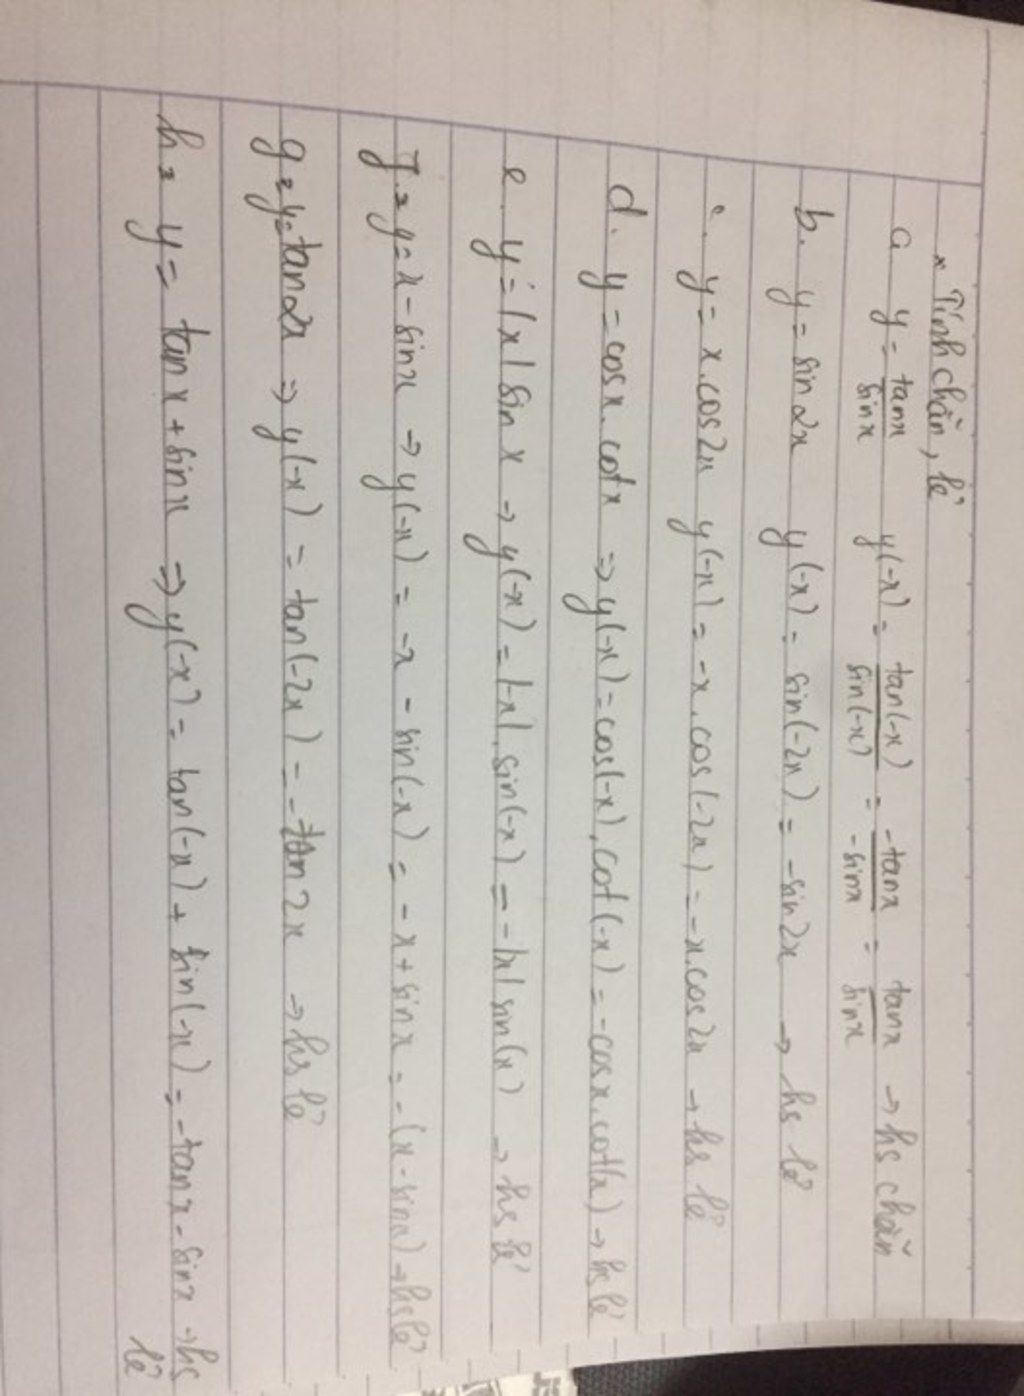 * Tính chẵn, lẻ
a y = tanx/sinx y(-x) = tan(-x)/sin(-x) = -tanx/-sinx = tanx/sinx → hs chẵn
b. y = sin2x y(-x) = sin(-2x) = -sin2x → hs lẻ
c. y = x.cos2x y(-x) = -x.cos(-2x) = -x.cos2x → hs lẻ
d. y = cosx.cotx ⇒ y(-x) = cos(-x).cot(-x) = -cosx.cot(x) → hs lẻ
e. y = |x| sin x → y(-x) = |-x|.sin(-x) = -|x| sin(x) → hs lẻ
y = x - sinx → y(-x) = -x - sin(-x) = -x + sinx = -(x - sinx) → hs lẻ
g = y = tan2x ⇒ y(-x) = tan(-2x) = -tan2x → hs lẻ
h = y = tanx + sinx ⇒ y(-x) = tan(-x) + sin(-x) = -tanx - sinx → hs
lẻ